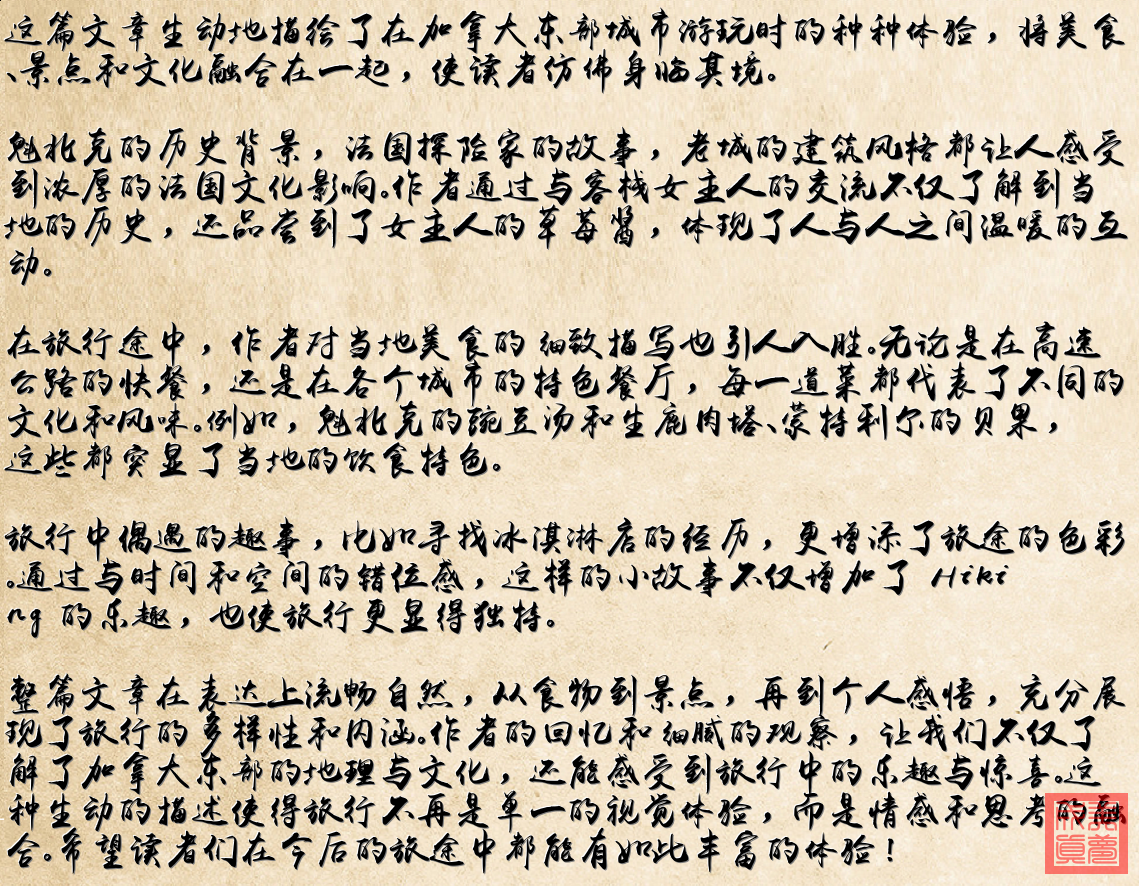 这篇文章生动地描绘了在加拿大东部城市游玩时的种种体验，将美食
、景点和文化融合在一起，使读者仿佛身临其境。
魁北克的历史背景，法国探险家的故事，老城的建筑风格都让人感受
到浓厚的法国文化影响。作者通过与客栈女主人的交流不仅了解到当
地的历史，还品尝到了女主人的草莓酱，体现了人与人之间温暖的互
动。
在旅行途中，作者对当地美食的细致描写也引人入胜。无论是在高速
公路的快餐，还是在各个城市的特色餐厅，每一道菜都代表了不同的
文化和风味。例如，魁北克的豌豆汤和生鹿肉塔、蒙特利尔的贝果，
这些都突显了当地的饮食特色。
旅行中偶遇的趣事，比如寻找冰淇淋店的经历，更增添了旅途的色彩
。通过与时间和空间的错位感，这样的小故事不仅增加了 Hiki
ng 的乐趣，也使旅行更显得独特。
整篇文章在表达上流畅自然，从食物到景点，再到个人感悟，充分展
现了旅行的多样性和内涵。作者的回忆和细腻的观察，让我们不仅了
解了加拿大东部的地理与文化，还能感受到旅行中的乐趣与惊喜。这
种生动的描述使得旅行不再是单一的视觉体验，而是情感和思考的融
合。希望读者们在今后的旅途中都能有如此丰富的体验！